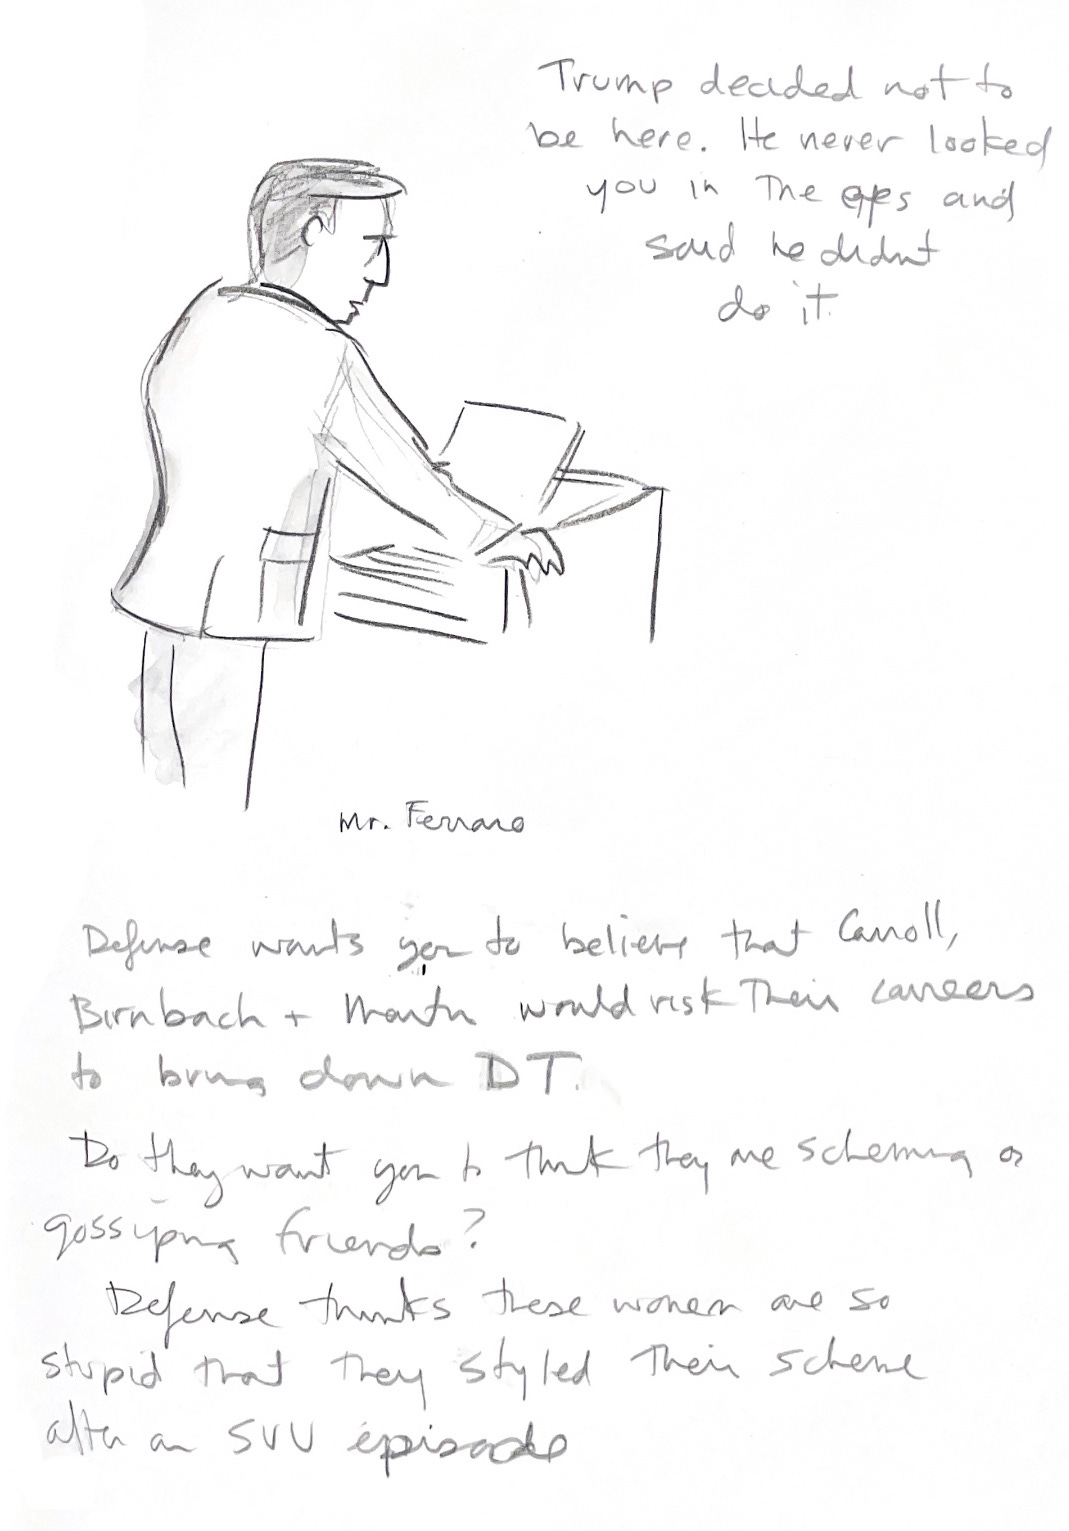 Trump decided not to
be here. He never looked
you in the eyes and
said he didnt
do it.
Mr. Ferraro
Defense wants you to believe that Carroll,
Birnbach + Martin would risk their careers
to bring down DT.
Do they want you to think they are scheming or
gossiping friends?
Defense thinks these women are so
stupid that they styled their scheme
after an SVU episode